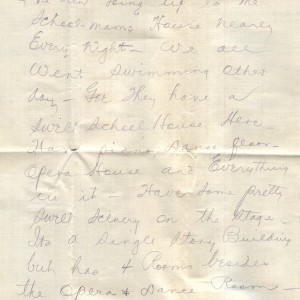 going up to the
School mams House nearly
Every Night - We all
Went Swimming Other
day - Gee They have a
Swell School House Here -
Have piano Dance floor -
Opera House and Everything
in it - Have Some pretty
Swell Scenery on the Stage -
Its a Single Story Building
but has 4 Rooms besides
the Opera & Dance Room -